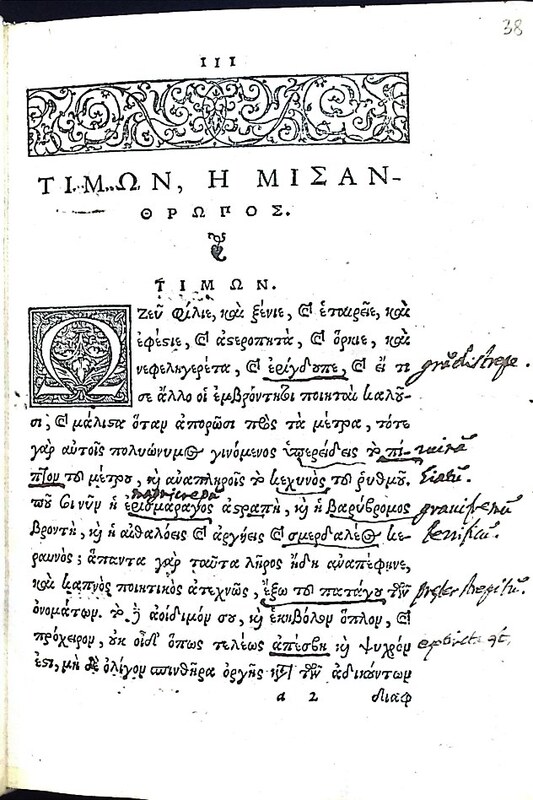 38
III
ΤΙΜΩΝ, Η ΜΙΣΑΝ-
ΘΡΩΠΟΣ.
ΤΙΜΩΝ.
Ω Ζεῦ Φίλιε, καὶ ξένιε, καὶ ἑταιρεῖε, καὶ
ἐφέστιε, καὶ ἀστεροπητὰ, καὶ ὅρκιε, καὶ
νεφεληγερέτα, καὶ ἐρίγδουπε, καὶ εἴ τι
σε ἄλλο οἱ ἐμβρόντητοι ποιηταὶ καλοῦ-
σι, καὶ μάλιστα ὅταν ἀπορῶσι πρὸς τὰ μέτρα, τότε
γὰρ αὐτοῖς πολυώνυμος γινόμενος ὑπερείδεις τὸ πῖ-
πτον τοῦ μέτρου, καὶ ἀναπληροῖς τὸ κεχηνὸς τοῦ ῥυθμοῦ.
ποῦ σοι νῦν ἡ ἐρισμάραγος ἀστραπὴ, καὶ ἡ βαρύβρομος
βροντὴ, καὶ ὁ αἰθαλόεις καὶ ἀργήεις καὶ σμερδαλέος κε-
ραυνός; ἅπαντα γὰρ ταῦτα λῆρος ἤδη ἀναπέφηνε,
καὶ καπνὸς ποιητικὸς ἀτεχνῶς, ἔξω τοῦ πατάγου τῶν
ὀνομάτων. τὸ δὲ ἀοίδιμόν σου, καὶ ἑκηβόλον ὅπλον, καὶ
πρόχειρον, οὐκ οἶδ' ὅπως τελέως ἀπέσβη καὶ ψυχρόν
ἐστι, μὴ δὲ ὀλίγον σπινθῆρα ὀργῆς κατὰ τῶν ἀδικούντων
a 2 διαφ